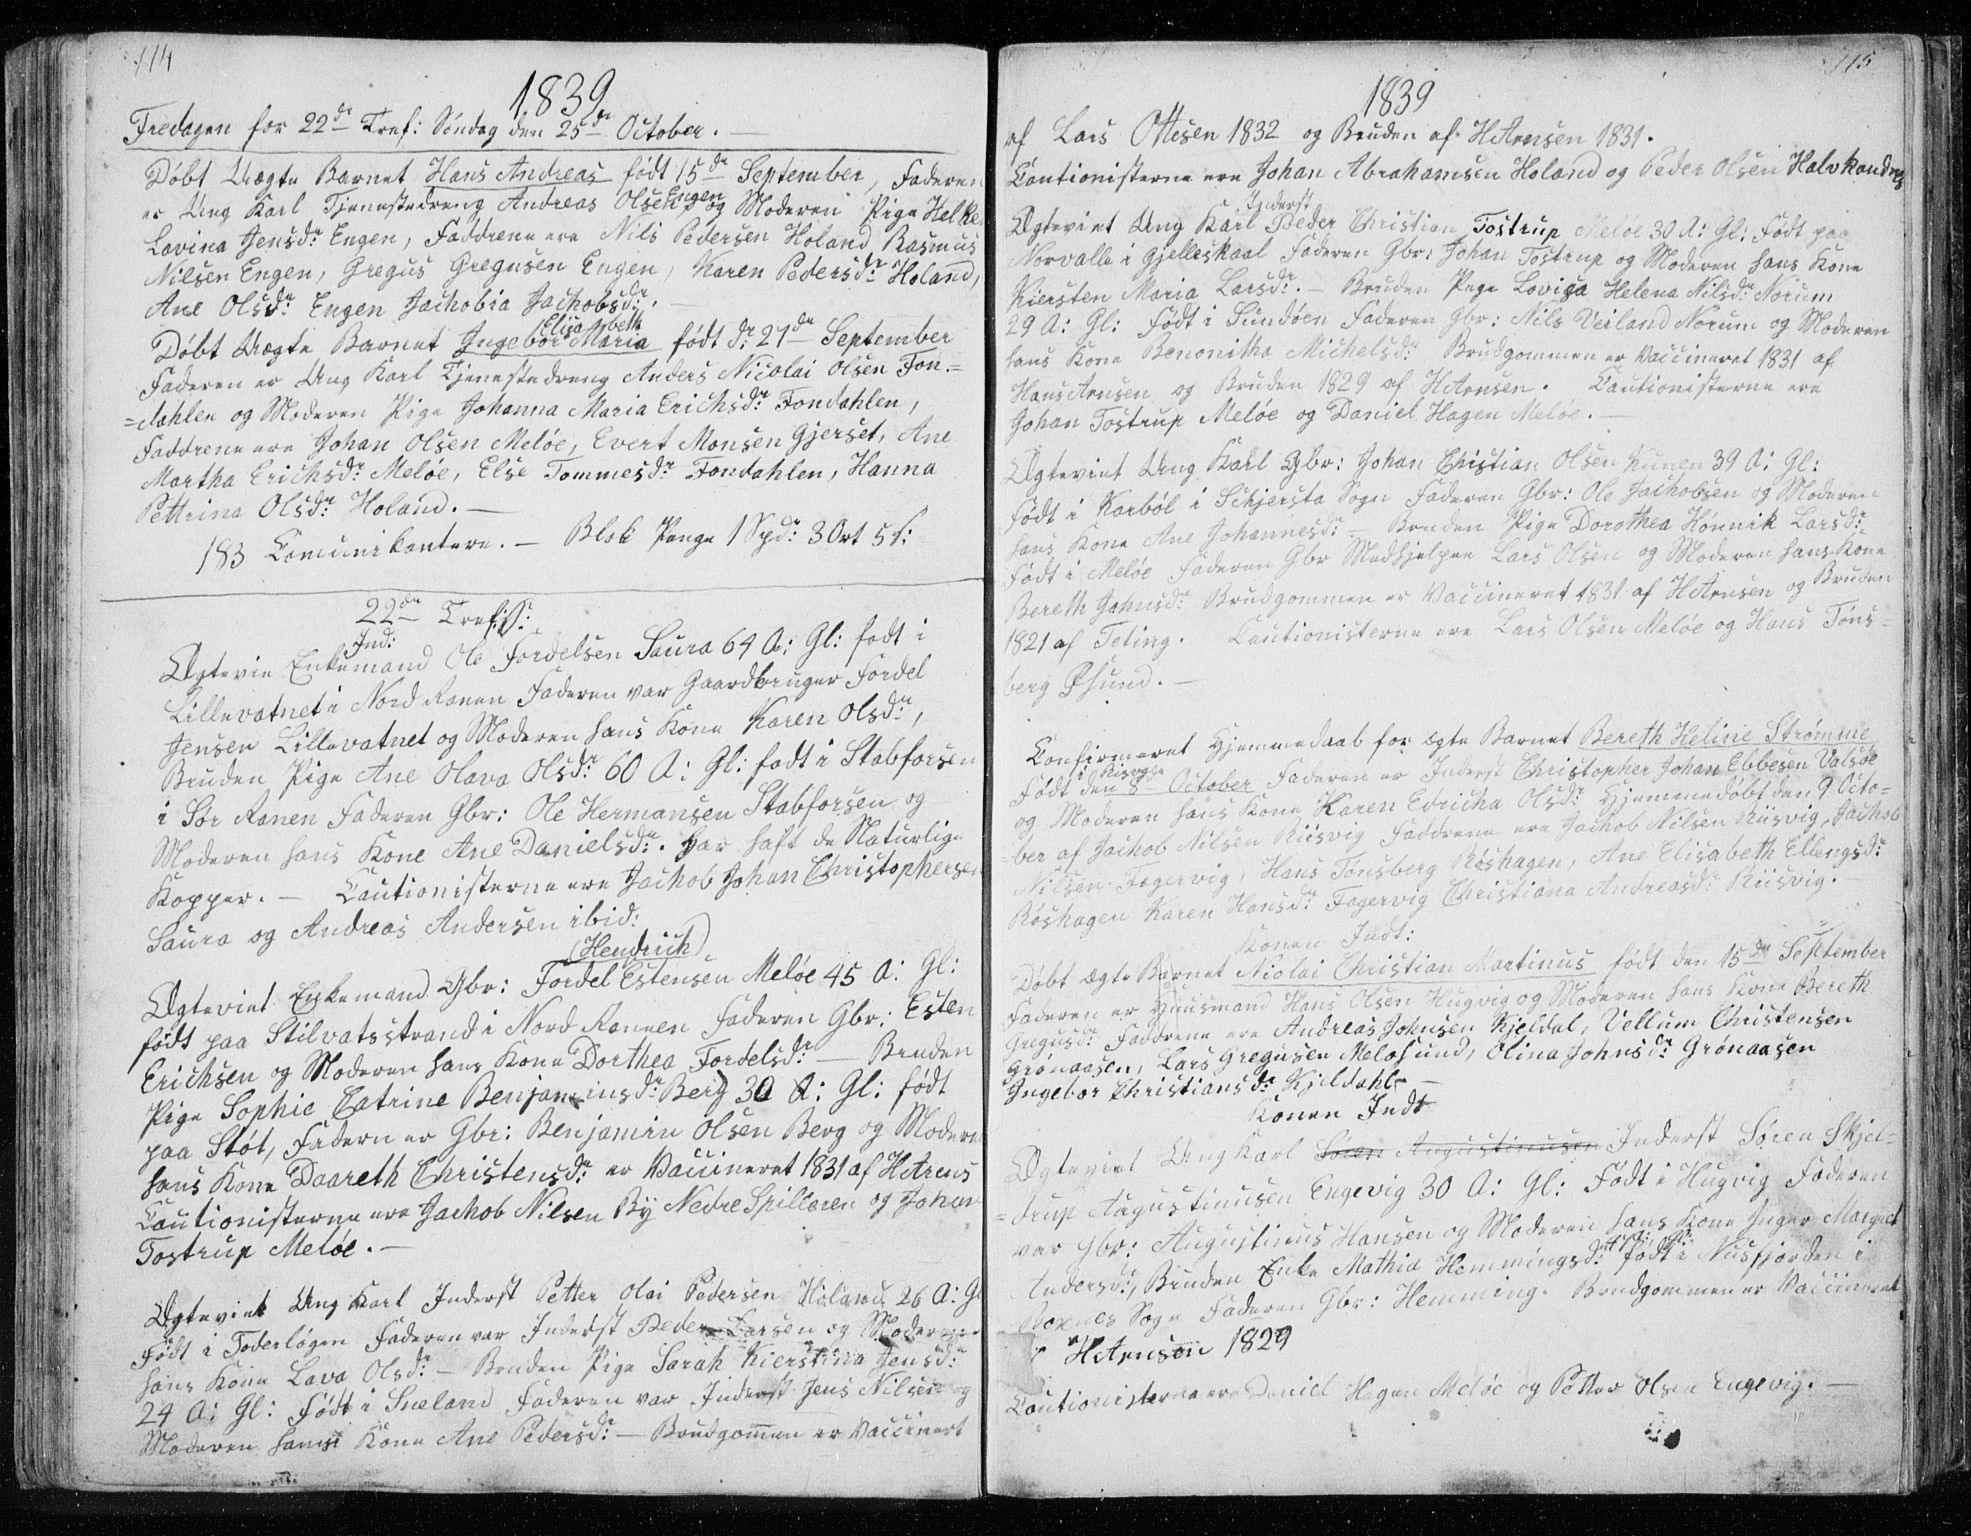 114
1839
Fredagen for 22de Tref: Søndag den 25de October. —
Døbt Uægte Barnet Hans Andreas født 15de September, Faderen
Engen
er Ung Karl Tjenestedreng Andreas Olsen og Moderen Pige Helke
Lovina Jensdr: Engen, Faddrene ere Nils Pedersen Holand, Rasmus
Nilsen Engen, Gregus Gregusen Engen, Karen Pedersdr: Holand,
Ane Olsdr: Engen Jachobia Jachobsdr. —
Elisabeth
Døbt Uægte Barnet Ingebor Maria født d: 21de September
Faderen er Ung Karl Tjenestedreng Anders Nicolai Olsen Fon-=
=dahlen og Moderen Pige Johanna Maria Erichsdr: Fondahlen,
Faddrene ere Johan Olsen Meløe, Evert Monsen Gjerset, Ane
Martha Erichsdr: Meløe, Else Tommesdr: Fondahlen, Hanna
Pettrina Olsdr: Holand. —
183 Comunikantere. — Blok Penge 1 Spdr: 3 Ort 5 s:
22de Tref:
Ind:
Ægtevie Enkemand Ole Fordelsen Saura 64 A: Gl: født i
Lillevatnet i Nord Ranen Faderen var Gaardbruger Fordel
Jensen Lillevatnet og Moderen hans Kone Karen Olsdr:,
Bruden Pige Ane Olava Olsdr: 60 A: Gl: født i Stabforsen
i Sør Ranen Faderen Gbr: Ole Hermansen Stabforsen og
Moderen hans Kone Ane Danielsdr:. Har haft de Naturlige
Kopper. — Cautionisterne ere Jachob Johan Christophersen
Saura og Andreas Andersen ibid:
(Hendrich)
Ægteviet Enkemand Gbr: Fordel Estensen Meløe 45 A: Gl:
født paa Stilvatsstrand i Nord Ranen Faderen Gbr: Esten
Erichsen og Moderen hans Kone Dorthea Fordelsdr: — Bruden
Pige Sophie Catrine Benjaminsdr: Berg 30 A: Gl: født
paa Støt, Fadern er Gbr: Benjamin Olsen Berg og Moderen
hans Kone Daareth Christensdr: er Vaccineret 1831 af H Arens
Cautionisterne ere Jachob Nilsen By Nedre Spilleren og Johan
Tostrup Meløe. —
Ægteviet Ung Karl Inderst Petter Olai Pedersen Holand 26 A: Gl
Født i Foderløgen Faderen var Inderst Peder Larsen og Moderen
hans Kone Lava Olsdr: — Bruden Pige Sarah Kierstina Jensdr:
24 A: Gl: Født i Sneland Faderen var Inderst Jens Nilsen og
Moderen hans Kone Ane Pedersdr: — Brudgommen er Vaccinert
115
1839
af Lars Ottesen 1832 og Bruden af H Arensen 1831.
Cautionisterne ere Johan Abrahamsen Holand og Peder Olsen Halvkandnes
Inderst
Ægteviet Ung Karl Peder Christian Tostrup Meløe 30 A: Gl: Født paa
Norvalle i Gjelleskaal Faderen Gbr: Johan Tostrup og Moderen hans Kone
Kiersten Maria Larsdr. — Bruden Pige Loviса Helena Nilsdr: Norum
29 A: Gl: Født i Sundøen Faderen Gbr: Nils Veiland Norum og Moderen
hans Kone Benonitha Michelsdr: Brudgommen er Vaccineret 1831 af
Hans Arnsen og Bruden 1829 af H Arnsen. Cautionisterne ere
Johan Tostrup Meløe og Daniel Hagen Meløe. —
Ægteviet Ung Karl Gbr: Johan Christian Olsen Kunen 39 A: Gl:
Født i Korbøl i Schjersta Sogn Faderen Gbr: Ole Jachobsen og Moderen
hans Kone Ane Johannesdr: — Bruden Pige Dorothea Hønnik Larsdr:
Født i Meløe Faderen Gbr Medhjelper Lars Olsen og Moderen hans Kone
Bereth Jahnsdr: Brudgommen er Vaccineret 1831 af H Arnsen og Bruden
1821 af Teting. Cautionisterne ere Lars Olsen Meløe og Hans Tøns=
berg Øsund. —
Confirmeret Hjemmedaab for ægte Barnet Bereth Heline Strømme
Født den 8de October Faderen er Inderst Christopher Johan Ebbesen Valsøe
og Moderen hans Kone Karen Edricha Olsdr: Hjemmedøbt den 9 Octo=
=ber af Jachob Nilsen Riisvig Faddrene ere Jachob Nilsen Riisvig, Jachob
Nilsen Fagervig, Hans Tønsberg Røshagen, Ane Elisabeth Ellengsdr:
Røshagen Karen Hansdr: Fagervig Christiana Andreasdr: Riisvig. —
Konen Indt:
Døbt ægte Barnet Nicolai Christian Martinus født den 15de September
Faderen er Huusmand Hans Olsen Hugvig og Moderen hans Kone Bereth
Gregusdr: Faddrene ere Andreas Johnsen Kjeldal, Vellum Christensen
Grønaasen, Lars Gregusen Meløsund, Olina Johnsdr: Grønaasen
Ingebor Christiansdr: Kjeldahl —
Konen Indt
Ægteviet Ung Karl Søren Augustinusen Inderst Søren Skjel=
=drup Augustinusen Engevig 30 A: Gl: Født i Hugvig Faderen
var Gbr: Augustinus Hansen og Moderen hans Kone Inger Margret
Andersdr:, Bruden Enke Mathia Hemmingsdr: født i Nusfjorden i
Boxnes Sogn Faderen Gbr: Hemming. Brudgommen er Vaccineret
H Arnsen 1829
Cautionisterne ere Daniel Hagen Meløe og Petter Olsen Engevig. —